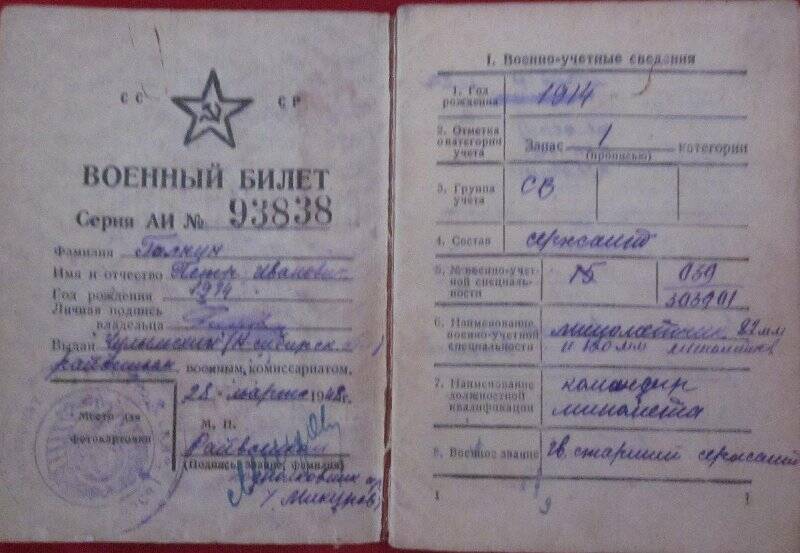 СС СР
ВОЕННЫЙ БИЛЕТ
Серия АИ № 93838
Фамилия
Имя и отчество Петр Иванович
Год рождения 1914
Личная подпись
владельца
Выдан
военным комиссариатом.
28 марта 1948 г.
Место для
фотокарточки
М. П.
(Подпись, звание, фамилия)
I. Военно-учетные сведения
1. Год
рождения
1914
2. Отметка
о категории
учета
Запас 1 категории
(прописью)
3. Группа
учета
СВ
4. Состав сержант
5. № военно-учет-
ной специаль-
ности
15
039
6. Наименование
военно-учетной
специальности
минометчик 82 мм
и 120 мм минометов
7. Наименование
должностной
квалификации
командир
миномета
8. Военное звание Гв. старший сержант
1
1